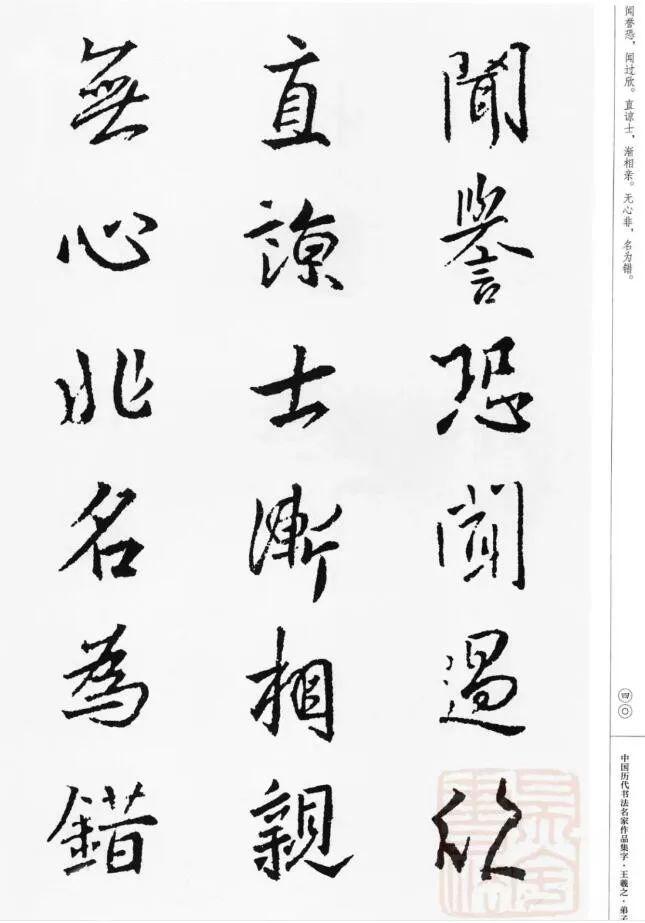 聞譽恐聞過欣
直諒士漸相親
無心非名為錯
闻誉恐，闻过欣。直谅士，渐相亲。无心非，名为错。
四〇
中国历代书法名家作品集字·王羲之·弟子